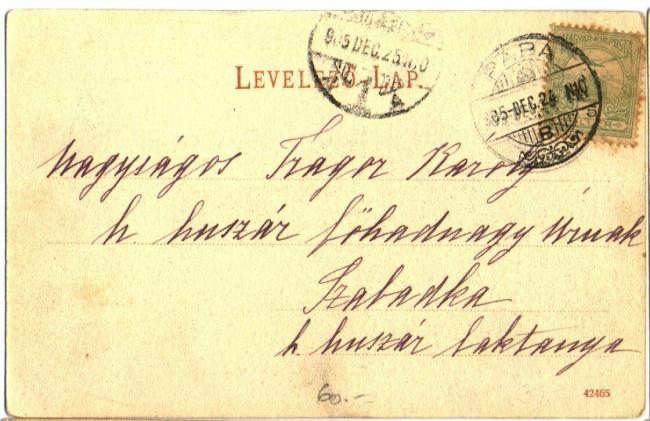 LEVELEZŐ-LAP.
905 DEC. 25. N. 0
PÁPA
905 DEC. 24 N10
B
MAGYAR KIR. POSTA
Nagyságos Tragor Karoly
h. huszár főhadnagy Urnak
Szabadka
h. huszár laktanya
60.-
42465